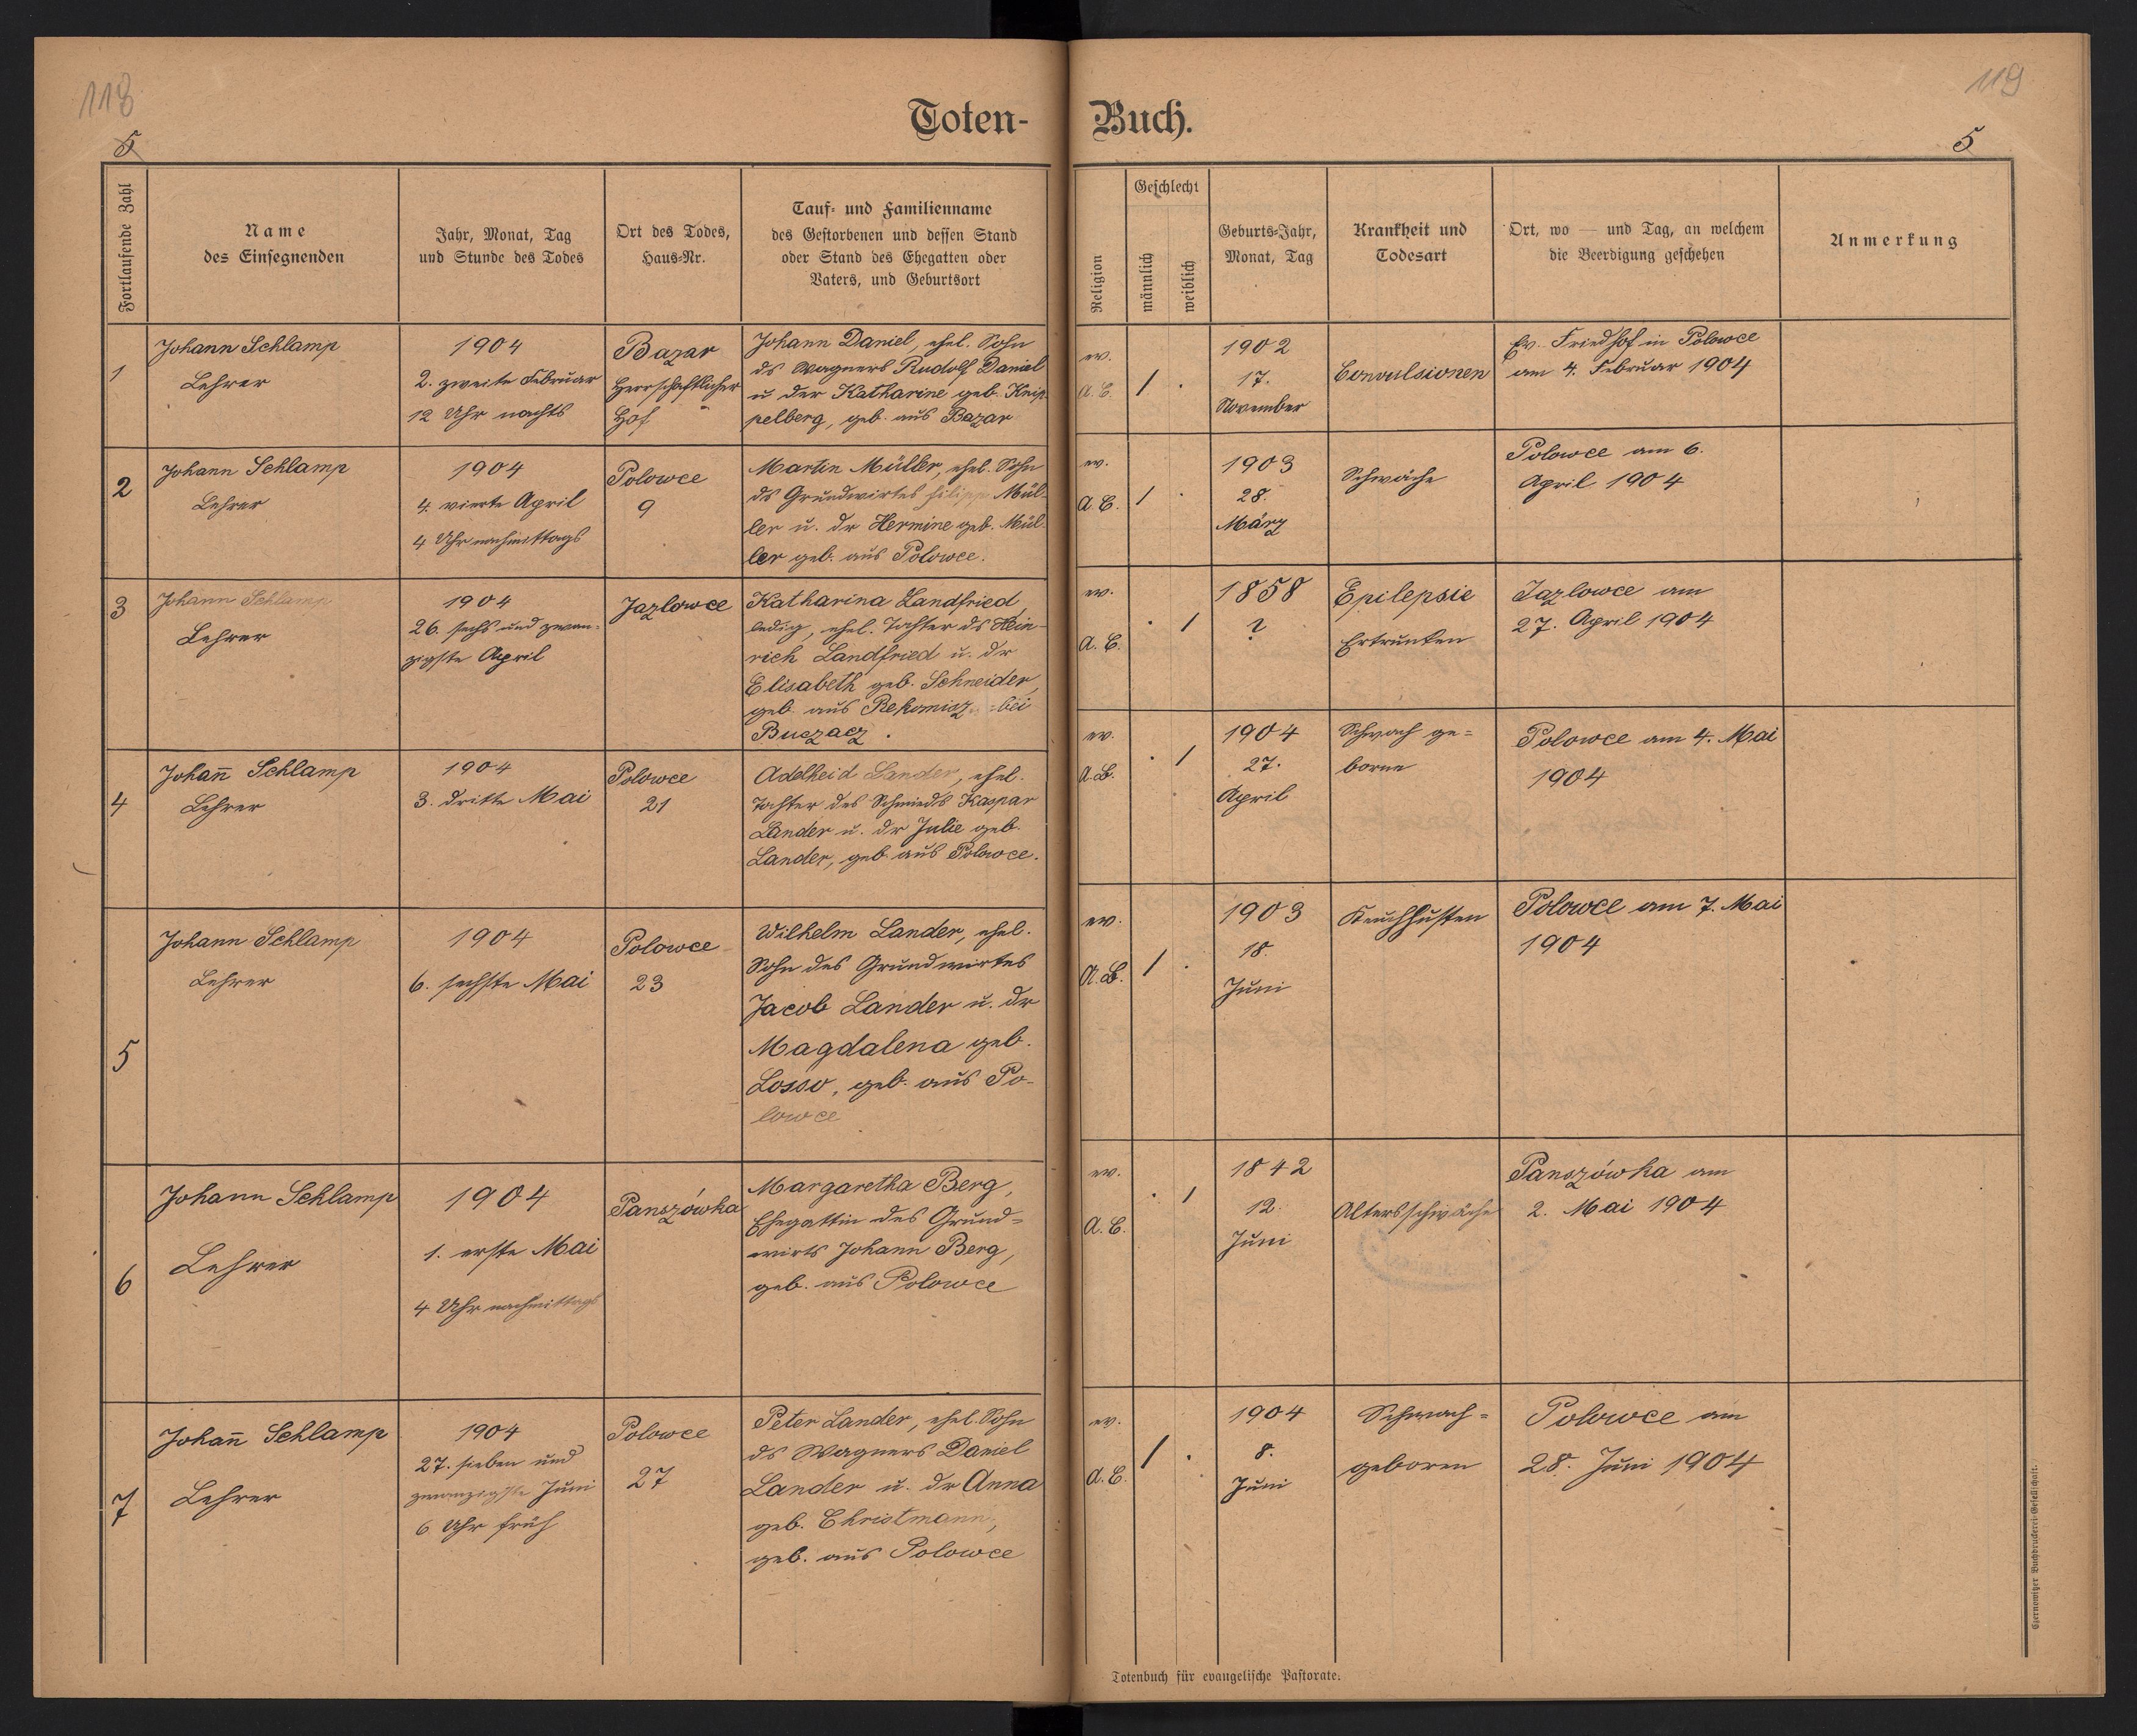 118
119
Toten- Buch.
5
5
Fortlaufende Zahl
Name
des Einsegnenden
Jahr, Monat, Tag
und Stunde des Todes
Ort des Todes,
Haus-Nr.
Tauf- und Familienname
des Gestorbenen und dessen Stand
oder Stand des Ehegatten oder
Vaters, und Geburtsort
Religion
Geschlecht
männlich
weiblich
Geburts-Jahr,
Monat, Tag
Krankheit und
Todesart
Ort, wo — und Tag, an welchem
die Beerdigung geschehen
Anmerkung
1
Johann Schlamp
Lehrer
1904
2. zweite Februar
12 Uhr nachts
Bazar
Herrschaftlicher
Hof
Johann Daniel, ehel. Sohn
ds Wagners Rudolf Daniel
u der Katharine geb. Knip-
pelberg, geb. aus Bazar
ev.
A. C.
1 .
1902
17.
November
Convulsionen
Ev. Friedhof in Polowce
am 4. Februar 1904
2
Johann Schlamp
Lehrer
1904
4. vierte April
4 Uhr nachmittags
Polowce
9
Martin Müller, ehel. Sohn
ds Grundwirtes Filipp Mül-
ler u. dr Hermine geb. Mül-
ler geb. aus Polowce.
ev.
A. C.
1 .
1903
28.
März
Schwäche
Polowce am 6.
April 1904
3
Johann Schlamp
Lehrer
1904
26. sechs und zwan-
zigste April
Jazlowce
Katharina Landfried,
ledig, ehel. Tochter ds Hein-
rich Landfried u. dr
Elisabeth geb. Schneider,
geb. aus bei
Buczacz.
ev.
A. C.
. 1
1858
?
Epilepsie
Ertrunken
Jazlowce am
27. April 1904
4
Johañ Schlamp
Lehrer
1904
3. dritte Mai
Polowce
21
Adelheid Lander, ehel.
Tochter des Schmieds Kaspar
Lander u. dr Julie geb.
Lander, geb. aus Polowce.
ev.
A. B.
. 1
1904
27.
April
Schwach ge-
boren
Polowce am 4. Mai
1904
5
Johann Schlamp
Lehrer
1904
6. sechste Mai
Polowce
23
Wilhelm Lander, ehel.
Sohn des Grundwirtes
Jacob Lander u. dr
Magdalena geb.
Losso, geb. aus Po-
lowce
ev.
A. B.
1 .
1903
18.
Juni
Keuchhusten
Polowce am 7. Mai
1904
6
Johann Schlamp
Lehrer
1904
1. erste Mai
4 Uhr nachmittags
Panszówka
Margaretha Berg,
Ehegattin des Grund-
wirts Johann Berg,
geb. aus Polowce
ev.
A. C.
. 1
1842
12.
Juni
Altersschwäche
Panszówka am
2. Mai 1904
7
Johañ Schlamp
Lehrer
1904
27. sieben und
zwanzigste Juni
6 Uhr früh
Polowce
27
Peter Lander, ehel. Sohn
ds Wagners Daniel
Lander u. dr Anna
geb. Christmann,
geb. aus Polowce
ev.
A. C.
1 .
1904
8.
Juni
Schwach-
geboren
Polowce am
28. Juni 1904
Totenbuch für evangelische Pastorate.
Czernowitzer Buchdruckerei-Gesellschaft.